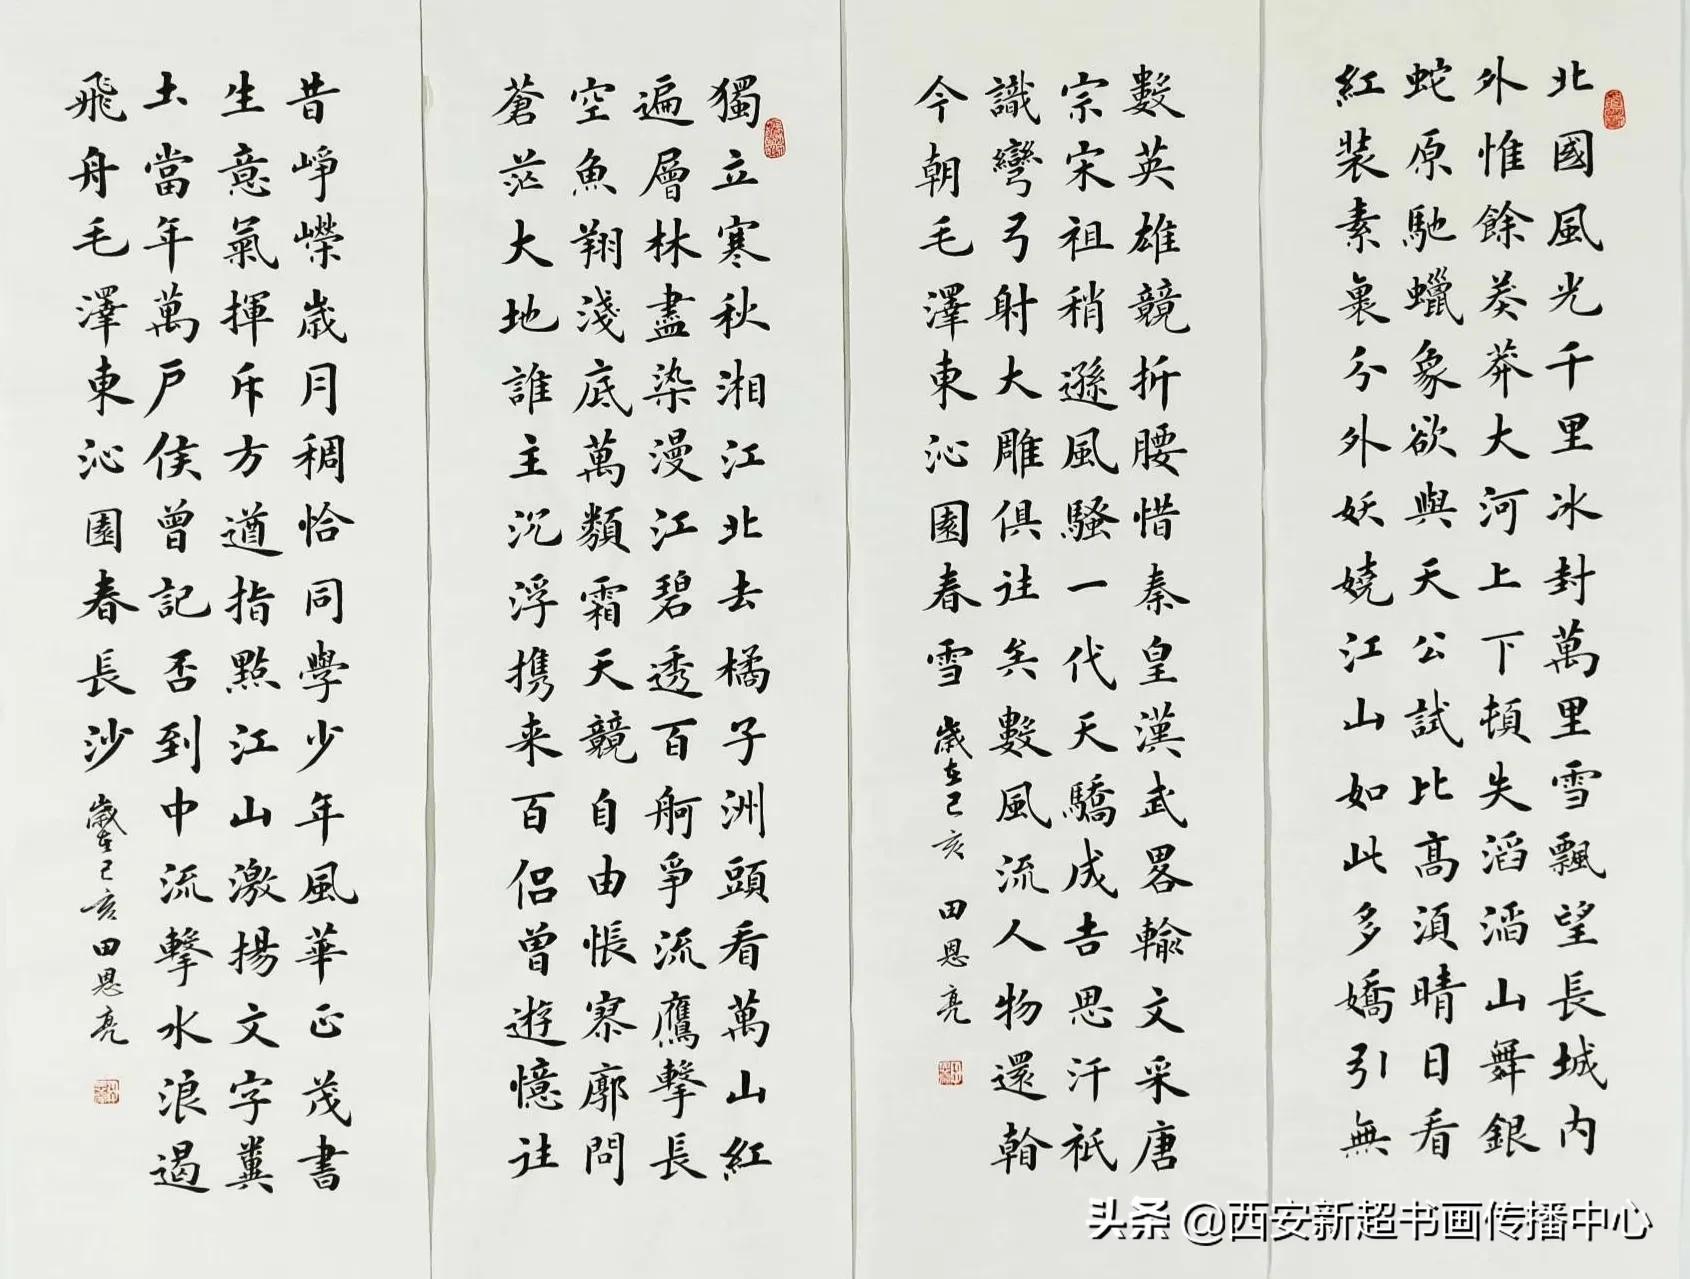 北國風光千里冰封萬里雪飄望長城內
外惟餘莽莽大河上下頓失滔滔山舞銀
蛇原馳蠟象欲與天公試比高須晴日看
紅裝素裹分外妖嬈江山如此多嬌引無
數英雄競折腰惜秦皇漢武畧輸文采唐
宗宋祖稍遜風騷一代天驕成吉思汗祇
識彎弓射大雕俱往矣數風流人物還看
今朝毛澤東沁園春雪 歲在己亥 田恩亮
獨立寒秋湘江北去橘子洲頭看萬山紅
遍層林盡染漫江碧透百舸爭流鷹擊長
空魚翔淺底萬類霜天競自由悵寥廓問
蒼茫大地誰主沉浮携来百侶曾遊憶往
昔崢嶸歲月稠恰同學少年風華正茂書
生意氣揮斥方遒指點江山激揚文字糞
土當年萬戶侯曾記否到中流擊水浪遏
飛舟毛澤東沁園春長沙 歲在己亥 田恩亮
头条 @西安新超书画传播中心